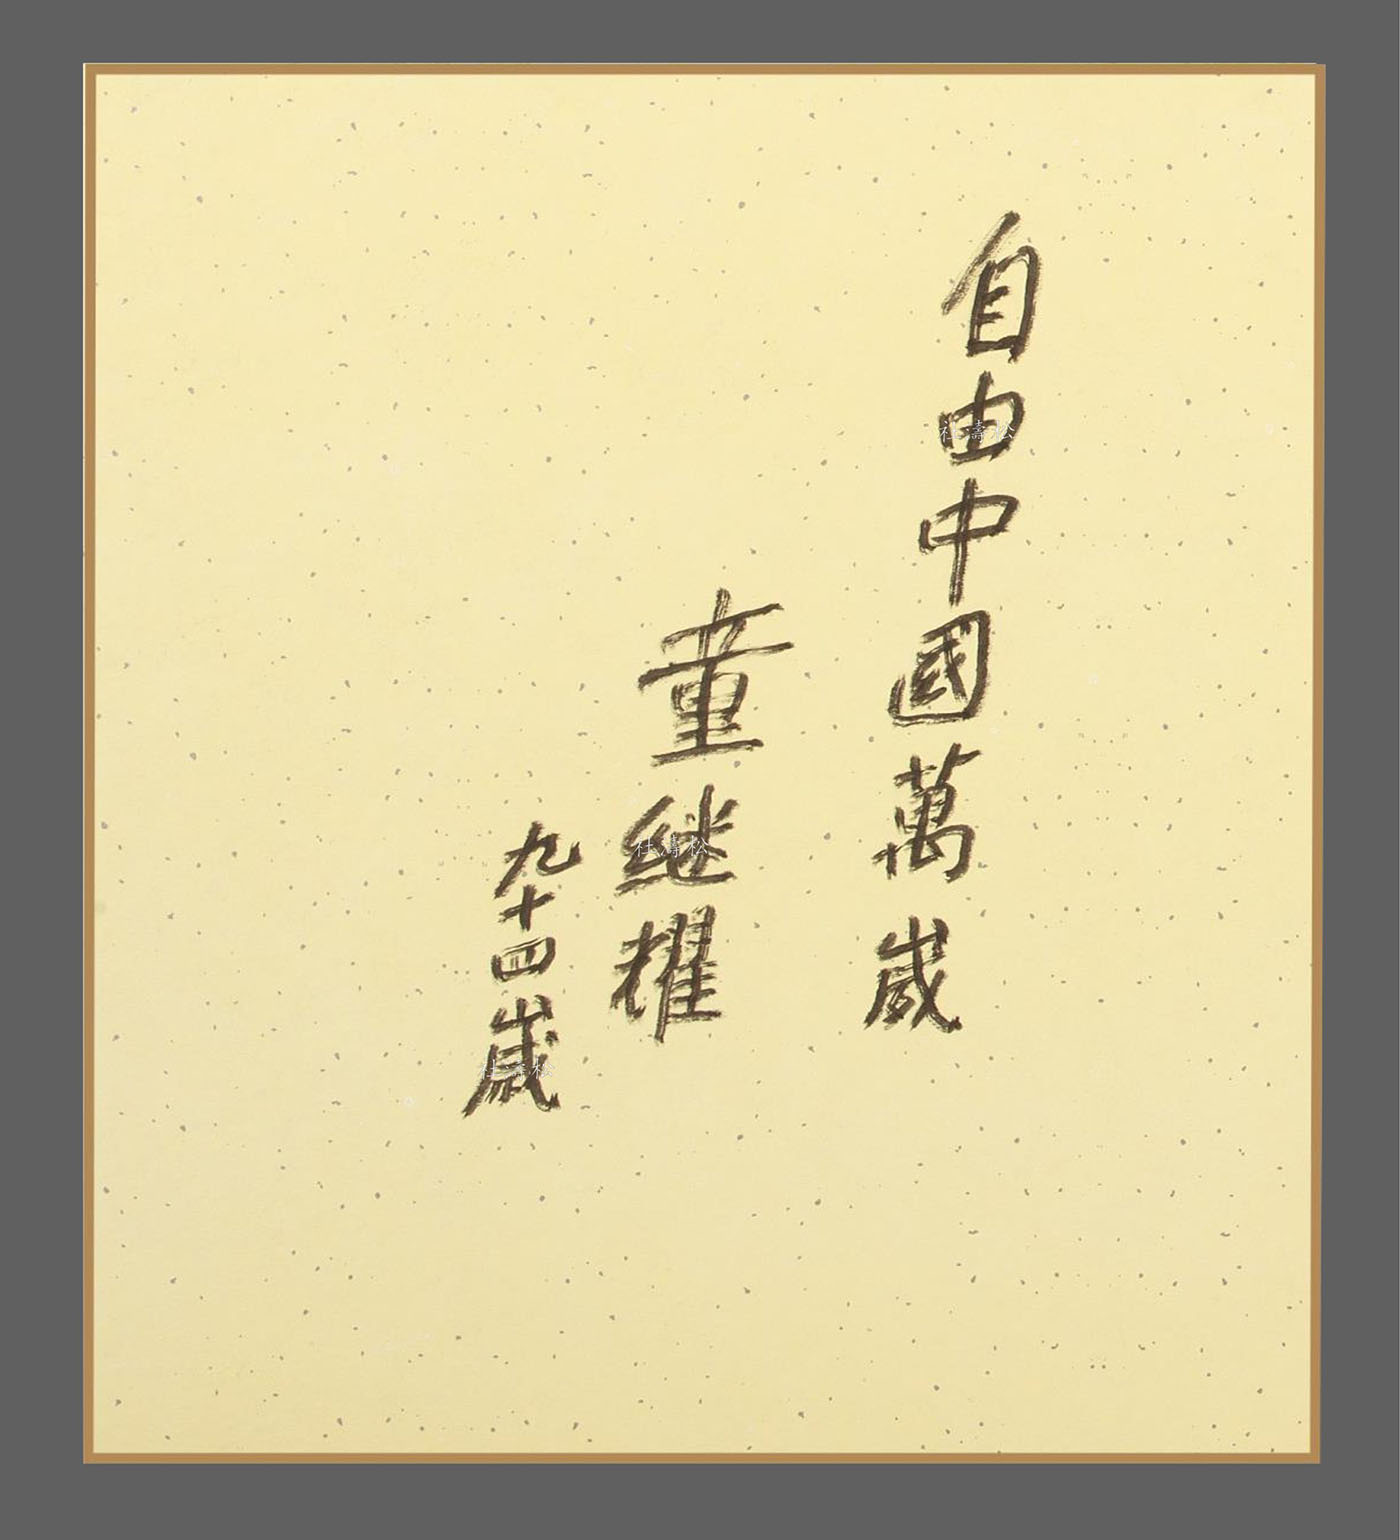 自由中國萬歲
童继耀
九十四歲
杜濤松
杜濤松
杜濤松